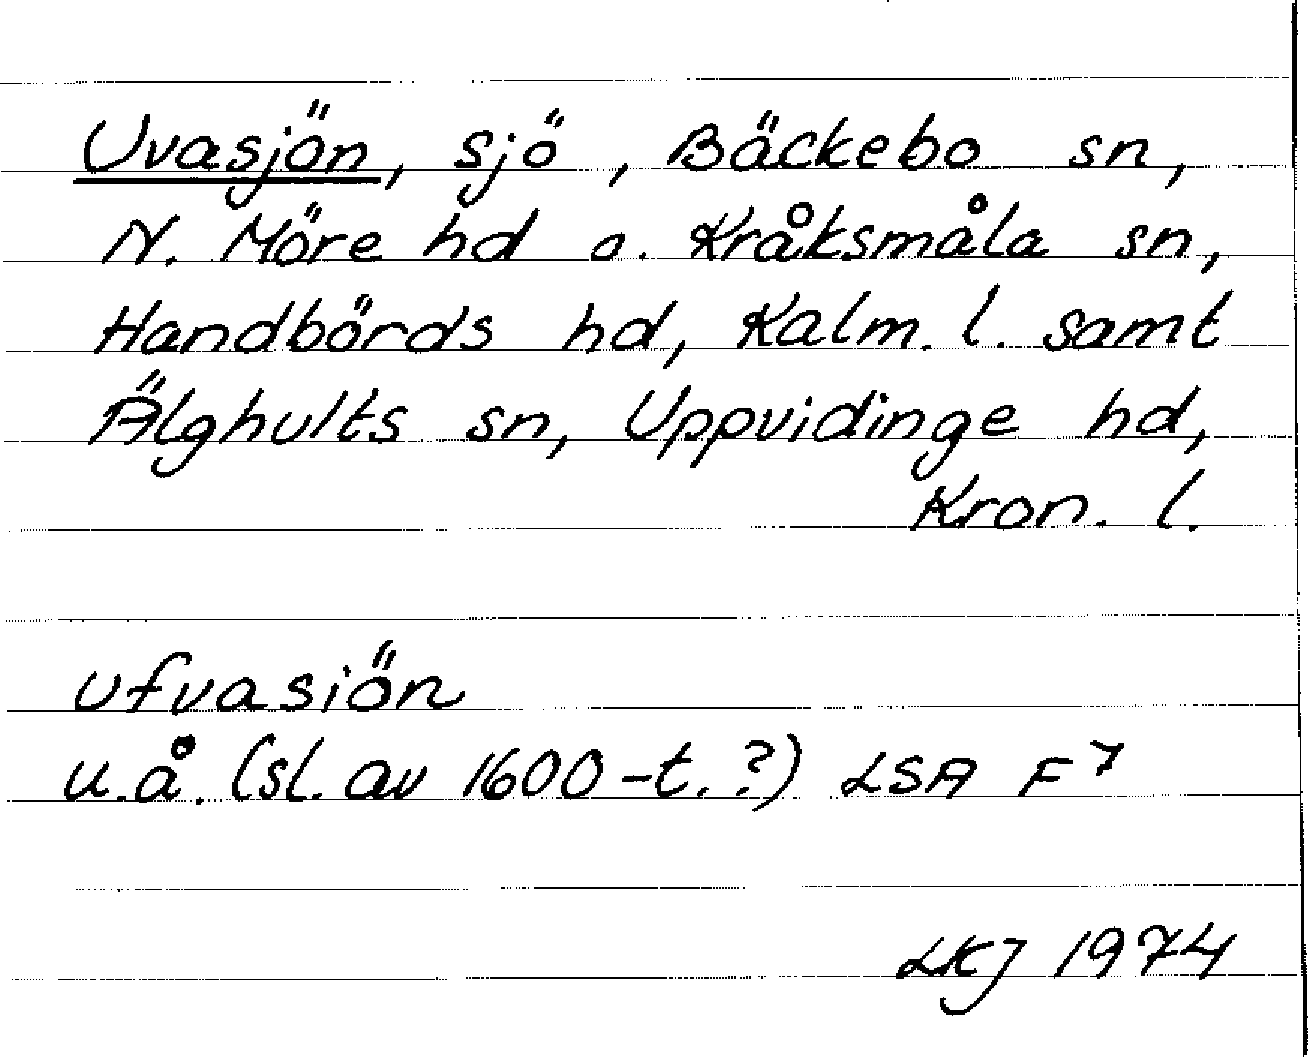 Uvasjön, sjö, Bäckebo sn,
N. Möre hd o. Kråksmåla sn,
Handbörds hd, Kalm. l. samt
Älghults sn, Uppvidinge hd,
Kron. l.
ufvasiön
u.å. (sl. av 1600-t.?) LSA F7
LKJ 1974